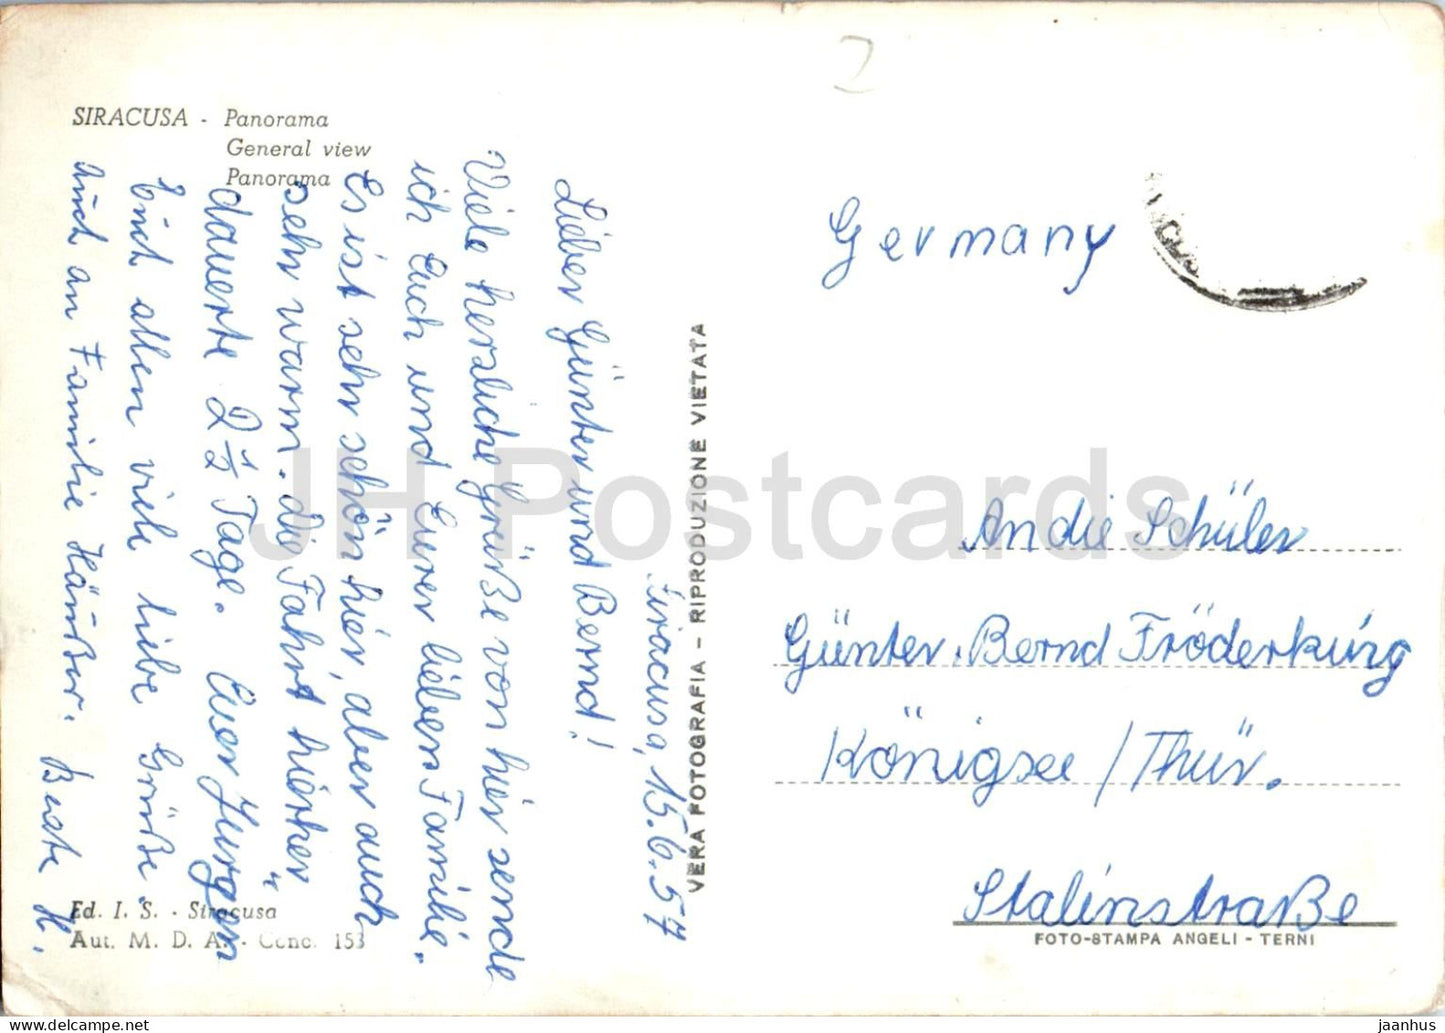 SIRACUSA - Panorama
General view
Panorama
Siracusa, 15.6.57
Lieber Günter und Bernd!
Viele herzliche Grüße von hier sende
ich Euch und Eurer lieben Familie.
Es ist sehr schön hier, aber auch
sehr warm. die Fahrt hierher
dauerte 2 1/2 Tage. Euer Jürgen
Euch allen viele liebe Grüße.
Auch an Familie Beate H.
Ed. I. S. - Siracusa
Aut. M. D. A. - Conc. 153
VERA FOTOGRAFIA - RIPRODUZIONE VIETATA
2
Germany
An die Schüler
Günter, Bernd Fröderking
Königsee / Thür.
Stalinstraße
FOTO-STAMPA ANGELI - TERNI
JH Postcards
jaanhus